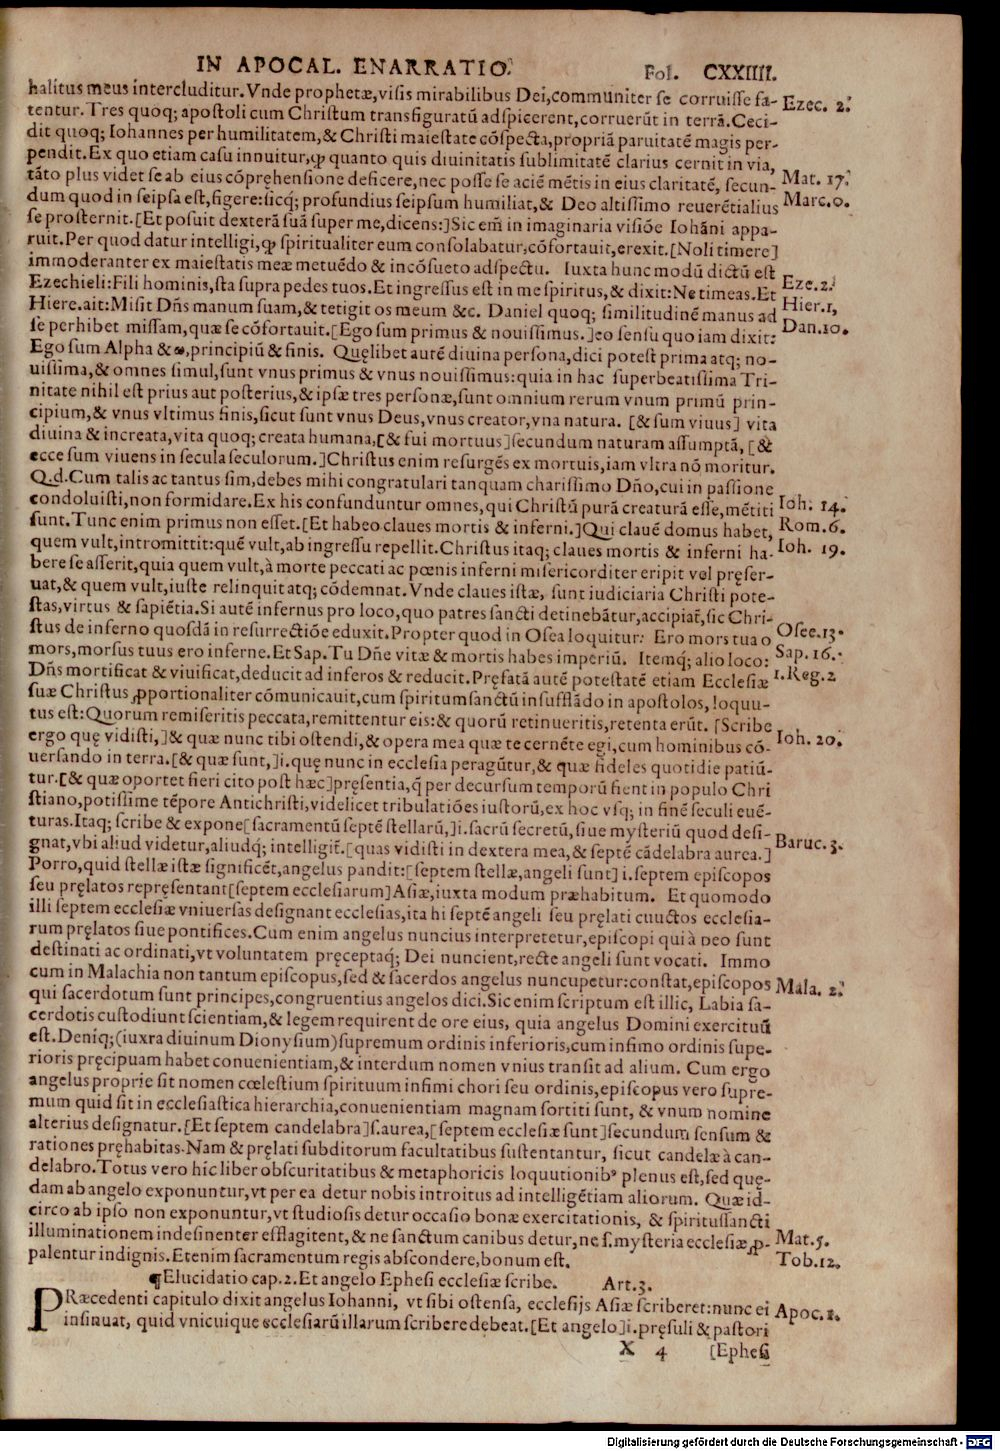 IN APOCAL. ENARRATIO. Fol. CXXIIII.
halitus meus intercluditur. Vnde prophetæ, visis mirabilibus Dei, communiter se corruisse fa- Ezec. 2.
tentur. Tres quoq; apostoli cum Christum transfiguratū adspicerent, corruerūt in terrā. Ceci-
dit quoq; Iohannes per humilitatem, & Christi maiestate cōspecta, propriā paruitatē magis per-
pendit. Ex quo etiam casu innuitur, ꝙ quanto quis diuinitatis sublimitatē clarius cernit in via,
tāto plus videt se ab eius cōpręhensione deficere, nec posse se aciē mētis in eius claritatē, secun- Mat. 17.
dum quod in seipsa est, figere: sicq; profundius seipsum humiliat, & Deo altissimo reuerētialius Marc. 9.
se prosternit. [Et posuit dexterā suā super me, dicens:] Sic em̄ in imaginaria visiōe Iohāni appa-
ruit. Per quod datur intelligi, ꝙ spiritualiter eum consolabatur, cōfortauit, erexit. [Noli timere]
immoderanter ex maiestatis meæ metuēdo & incōsueto adspectu. Iuxta hunc modū dictū est
Ezechieli: Fili hominis, sta supra pedes tuos. Et ingressus est in me spiritus, & dixit: Ne timeas. Et Eze. 2.
Hiere. ait: Misit Dn̄s manum suam, & tetigit os meum &c. Daniel quoq; similitudinē manus ad Hier. 1,
se perhibet missam, quæ se cōfortauit. [Ego sum primus & nouissimus.] eo sensu quo iam dixit: Dan. 10.
Ego sum Alpha & ω, principiū & finis. Quęlibet autē diuina persona, dici potest prima atq; no-
uissima, & omnes simul, sunt vnus primus & vnus nouissimus: quia in hac superbeatissima Tri-
nitate nihil est prius aut posterius, & ipsæ tres personæ, sunt omnium rerum vnum primū prin-
cipium, & vnus vltimus finis, sicut sunt vnus Deus, vnus creator, vna natura. [& sum viuus] vita
diuina & increata, vita quoq; creata humana, [& fui mortuus] secundum naturam assumptā, [&
ecce sum viuens in secula seculorum.] Christus enim resurgēs ex mortuis, iam vltra nō moritur.
Q.d. Cum talis ac tantus sim, debes mihi congratulari tanquam charissimo Dño, cui in passione
condoluisti, non formidare. Ex his confunduntur omnes, qui Christū purā creaturā esse, mētiti Ioh. 14.
sunt. Tunc enim primus non esset. [Et habeo claues mortis & inferni.] Qui clauē domus habet, Rom. 6.
quem vult, intromittit: quē vult, ab ingressu repellit. Christus itaq; claues mortis & inferni ha- Ioh. 19.
bere se asserit, quia quem vult, à morte peccati ac pœnis inferni misericorditer eripit vel pręser-
uat, & quem vult, iuste relinquit atq; cōdemnat. Vnde claues istæ, sunt iudiciaria Christi pote-
stas, virtus & sapiētia. Si autē infernus pro loco, quo patres sancti detinebātur, accipiat̄, sic Chri-
stus de inferno quosdā in resurrectiōe eduxit. Propter quod in Osea loquitur: Ero mors tua o Osee. 13.
mors, morsus tuus ero inferne. Et Sap. Tu Dñe vitæ & mortis habes imperiū. Itemq; alio loco: Sap. 16.
Dn̄s mortificat & viuificat, deducit ad inferos & reducit. Pręfatā autē potestatē etiam Ecclesiæ 1. Reg. 2
suæ Christus ꝓportionaliter cōmunicauit, cum spiritum sanctū insufflādo in apostolos, loquu-
tus est: Quorum remiseritis peccata, remittentur eis: & quorū retinueritis, retenta erūt. [Scribe
ergo quę vidisti,] & quæ nunc tibi ostendi, & opera mea quæ te cernēte egi, cum hominibus cō- Ioh. 20.
uersando in terra. [& quæ sunt,] i. quę nunc in ecclesia peragūtur, & quæ fideles quotidie patiū-
tur. [& quæ oportet fieri cito post hæc] pręsentia, q̄ per decursum temporū fient in populo Chri
stiano, potissime tēpore Antichristi, videlicet tribulatiōes iustorū, ex hoc vsq; in finē seculi euē-
turas. Itaq; scribe & expone [sacramentū septē stellarū,] i. sacrū secretū, siue mysteriū quod desi-
gnat, vbi aliud videtur, aliudq; intelligit̄. [quas vidisti in dextera mea, & septē cādelabra aurea.] Baruc. 3.
Porro, quid stellæ istæ significēt, angelus pandit: [septem stellæ, angeli sunt] i. septem episcopos
seu pręlatos repręsentant [septem ecclesiarum] Asiæ, iuxta modum præhabitum. Et quomodo
illi septem ecclesiæ vniuersas designant ecclesias, ita hi septē angeli seu pręlati cuuctos ecclesia-
rum pręlatos siue pontifices. Cum enim angelus nuncius interpretetur, episcopi qui à Deo sunt
destinati ac ordinati, vt voluntatem pręceptaq; Dei nuncient, recte angeli sunt vocati. Immo
cum in Malachia non tantum episcopus, sed & sacerdos angelus nuncupetur: constat, episcopos Mala. 2.
qui sacerdotum sunt principes, congruentius angelos dici. Sic enim scriptum est illic, Labia sa-
cerdotis custodiunt scientiam, & legem requirent de ore eius, quia angelus Domini exercituū
est. Deniq; (iuxra diuinum Dionysium) supremum ordinis inferioris, cum infimo ordinis supe-
rioris pręcipuam habet conuenientiam, & interdum nomen vnius transit ad alium. Cum ergo
angelus proprie sit nomen cœlestium spirituum infimi chori seu ordinis, episcopus vero supre-
mum quid sit in ecclesiastica hierarchia, conuenientiam magnam sortiti sunt, & vnum nomine
alterius designatur. [Et septem candelabra] s. aurea, [septem ecclesiæ sunt] secundum sensum &
rationes pręhabitas. Nam & pręlati subditorum facultatibus sustentantur, sicut candelæ à can-
delabro. Totus vero hic liber obscuritatibus & metaphoricis loquutionibꝰ plenus est, sed quę-
dam ab angelo exponuntur, vt per ea detur nobis introitus ad intelligētiam aliorum. Quæ id-
circo ab ipso non exponuntur, vt studiosis detur occasio bonæ exercitationis, & spiritussancti
illuminationem indesinenter efflagitent, & ne sanctum canibus detur, ne s. mysteria ecclesiæ ꝓ- Mat. 5.
palentur indignis. Etenim sacramentum regis abscondere, bonum est. Tob. 12.
¶ Elucidatio cap. 2. Et angelo Ephesi ecclesiæ scribe. Art. 3.
PRæcedenti capitulo dixit angelus Iohanni, vt sibi ostensa, ecclesijs Asiæ scriberet: nunc ei Apoc. 1.
insinuat, quid vnicuique ecclesiarū illarum scribere debeat. [Et angelo] i. pręsuli & pastori
X 4 [Ephesi
Digitalisierung gefördert durch die Deutsche Forschungsgemeinschaft - DFG